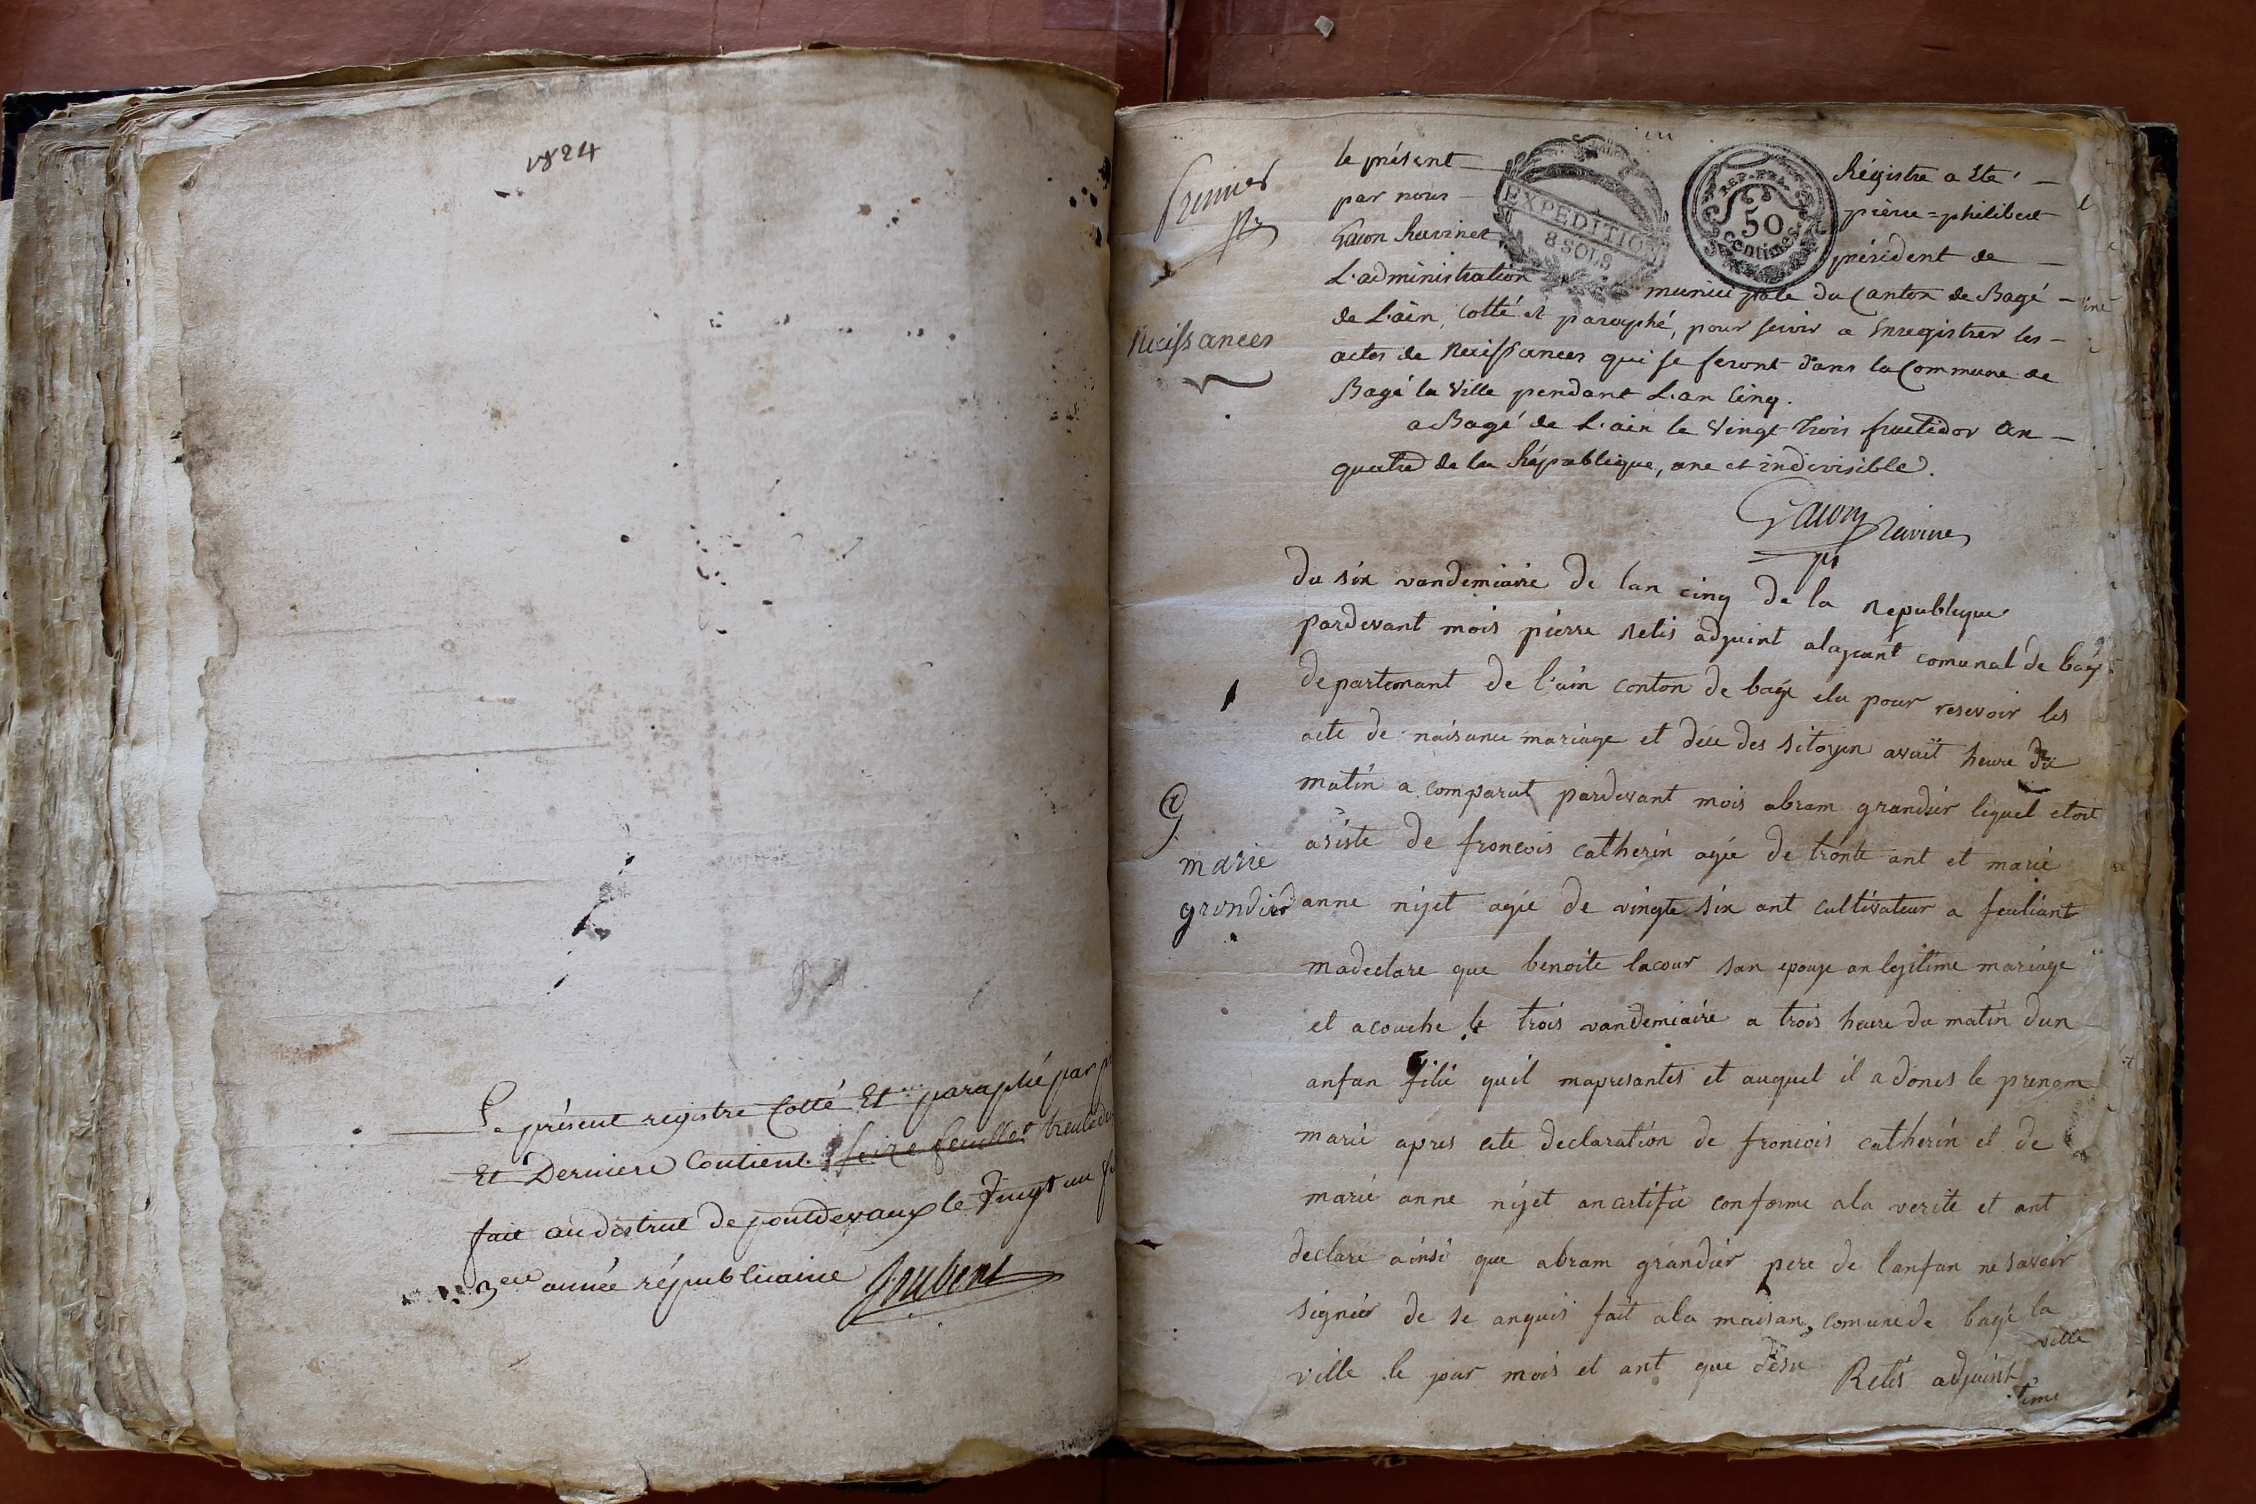 1824
Le présent registre Cotté Et paraphé par
Et Derniere Contient seize feuillet trente
fait au district de pontdevaux le Vingt un
3eme année républicaine Joubert
Premier
Naissances
le présent Régistre a Eté
par nous pierre=philibert
Gacon Ravinet président de
L'administration municipale du Canton de Bagé
de L'ain, Cotté et paraphé, pour servir a Enregistrer les
actes de Naissances qui se feront dans la Commune de
Bagé la Ville pendant L'an Cinq.
a Bagé de L'ain le Vingt trois fructidor an
quatre de la République, une et indivisible.
EXPEDITION
8 SOLS
REP. FRA.
50
centimes
Gacon Ravinet
du six vandemiaire de lan cinq de la republique
pardevant mois pierre Retis adjuint alajeant comunal de bagé
departemant de l'ain conton de bagé elu pour resevoir les
acte de naisance mariage et dée des sitoyen avait heure du
matin a comparut pardevant mois abram grandier liquel etoit
asiste de froncois catherin agée de tronte ant et marie
anne nijet agée de vingte six ant cultivateur a feuliant
madeclare que benoite lacour son epouse an legitime mariage
et acouche le trois vandemiaire a trois heure du matin dun
anfan filie quil mapresantes et auquel il a dones le prenom
marie apres cete declaration de froncois catherin et de
marie anne nijet an certifie conforme ala verite et ant
declare ainsi que abram grandier pere de lanfan ne savoir
signier de se anquis fait ala maison comune de bagé la
ville
ville le jour mois et ant que desu Retis adjuint
marie
grondier